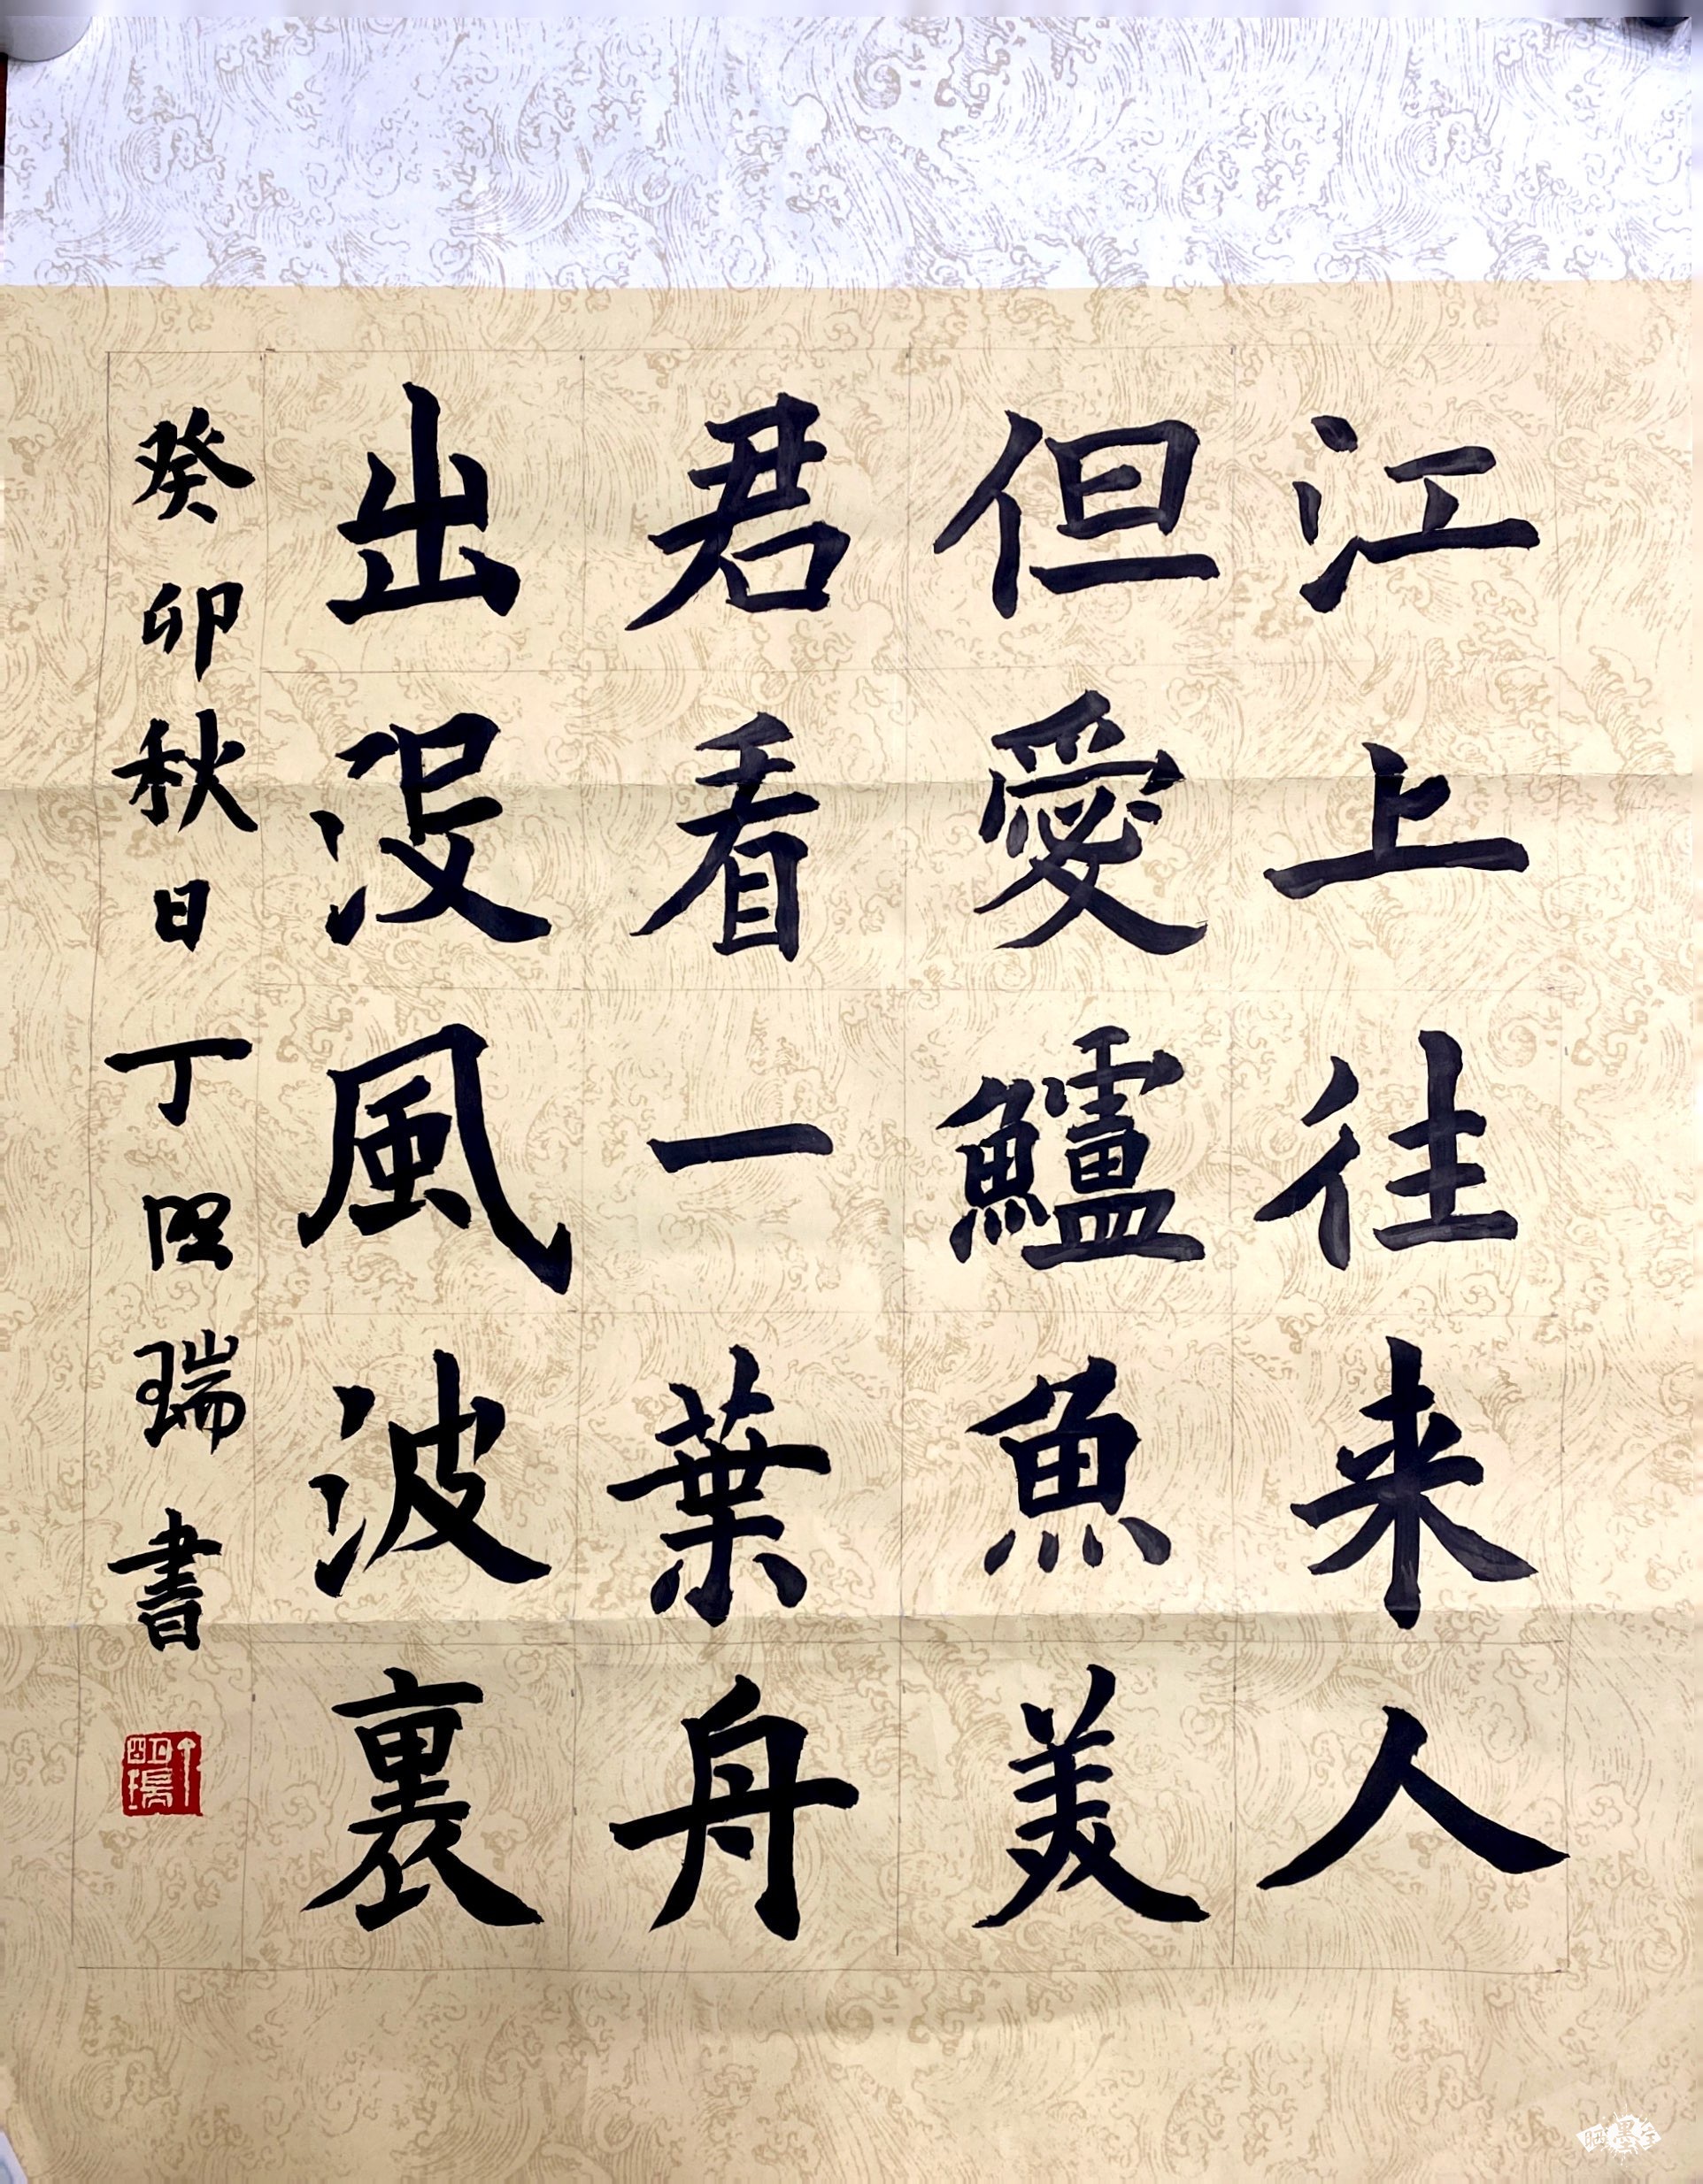 江上往来人
但愛鱸魚美
君看一葉舟
出没風波裏
癸卯秋日丁瑞書
晒墨宝